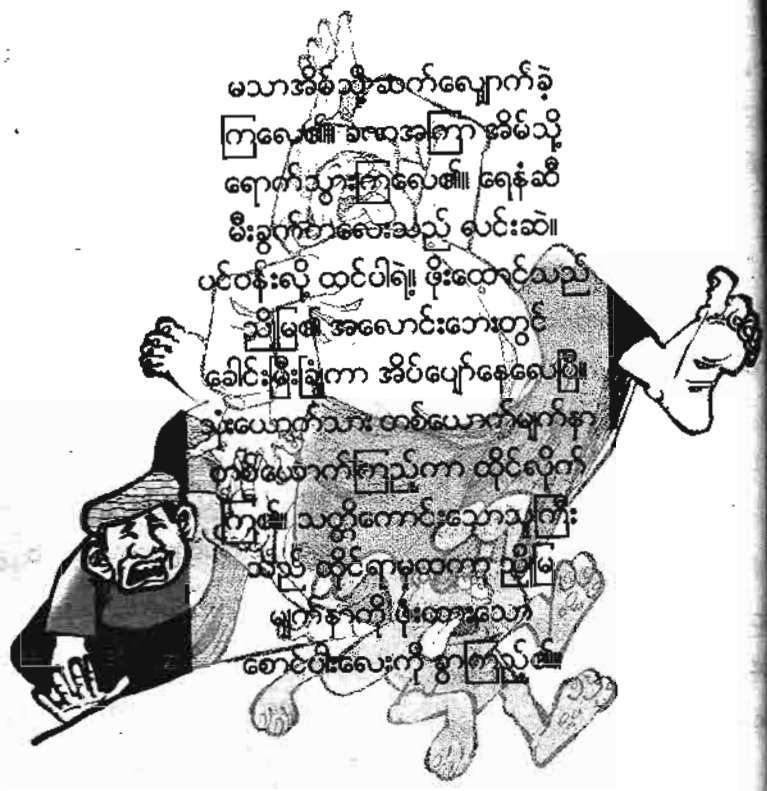 မသာအိမ်သို့ ဆက်လျှောက်ခဲ့
ကြလေ၏။ ခဏအကြာ အိမ်သို့
ရောက်သွားကြလေ၏။ ရေနံဆီ
မီးခွက်ကလေးသည် လင်းဆဲ။
ပင်ပန်းလို့ ထင်ပါရဲ့။ ဖိုးထောင်သည်
ညိုမြ၏ အလောင်းဘေးတွင်
ခေါင်းမြီးခြုံကာ အိပ်ပျော်နေလေပြီ။
သုံးယောက်သား တစ်ယောက်မျက်နှာ
တစ်ယောက်ကြည့်ကာ ထိုင်လိုက်
ကြ၏။ သတ္တိကောင်းသောသူကြီး
သည် ထိုင်ရာမှထကာ ညိုမြ
မျက်နှာကို ဖုံးထားသော
စောင်ပါးလေးကို ခွာကြည့်၏။